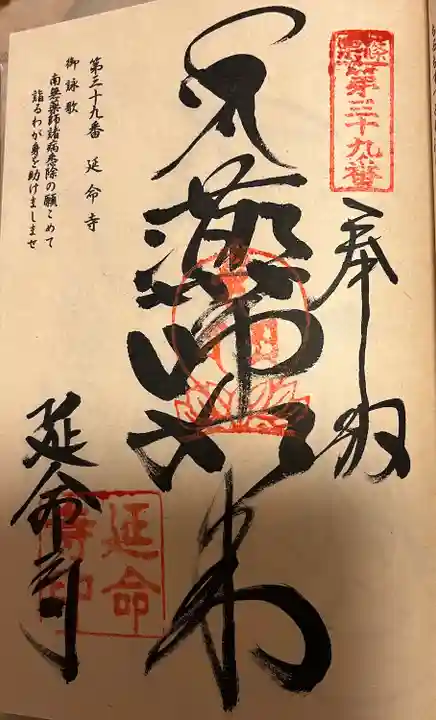 第三十九番
奉拝
薬師如来
延命寺
延命寺印
第三十九番 延命寺
御詠歌
南無薬師諸病悉除の願こめて
詣るわが身を助けましませ